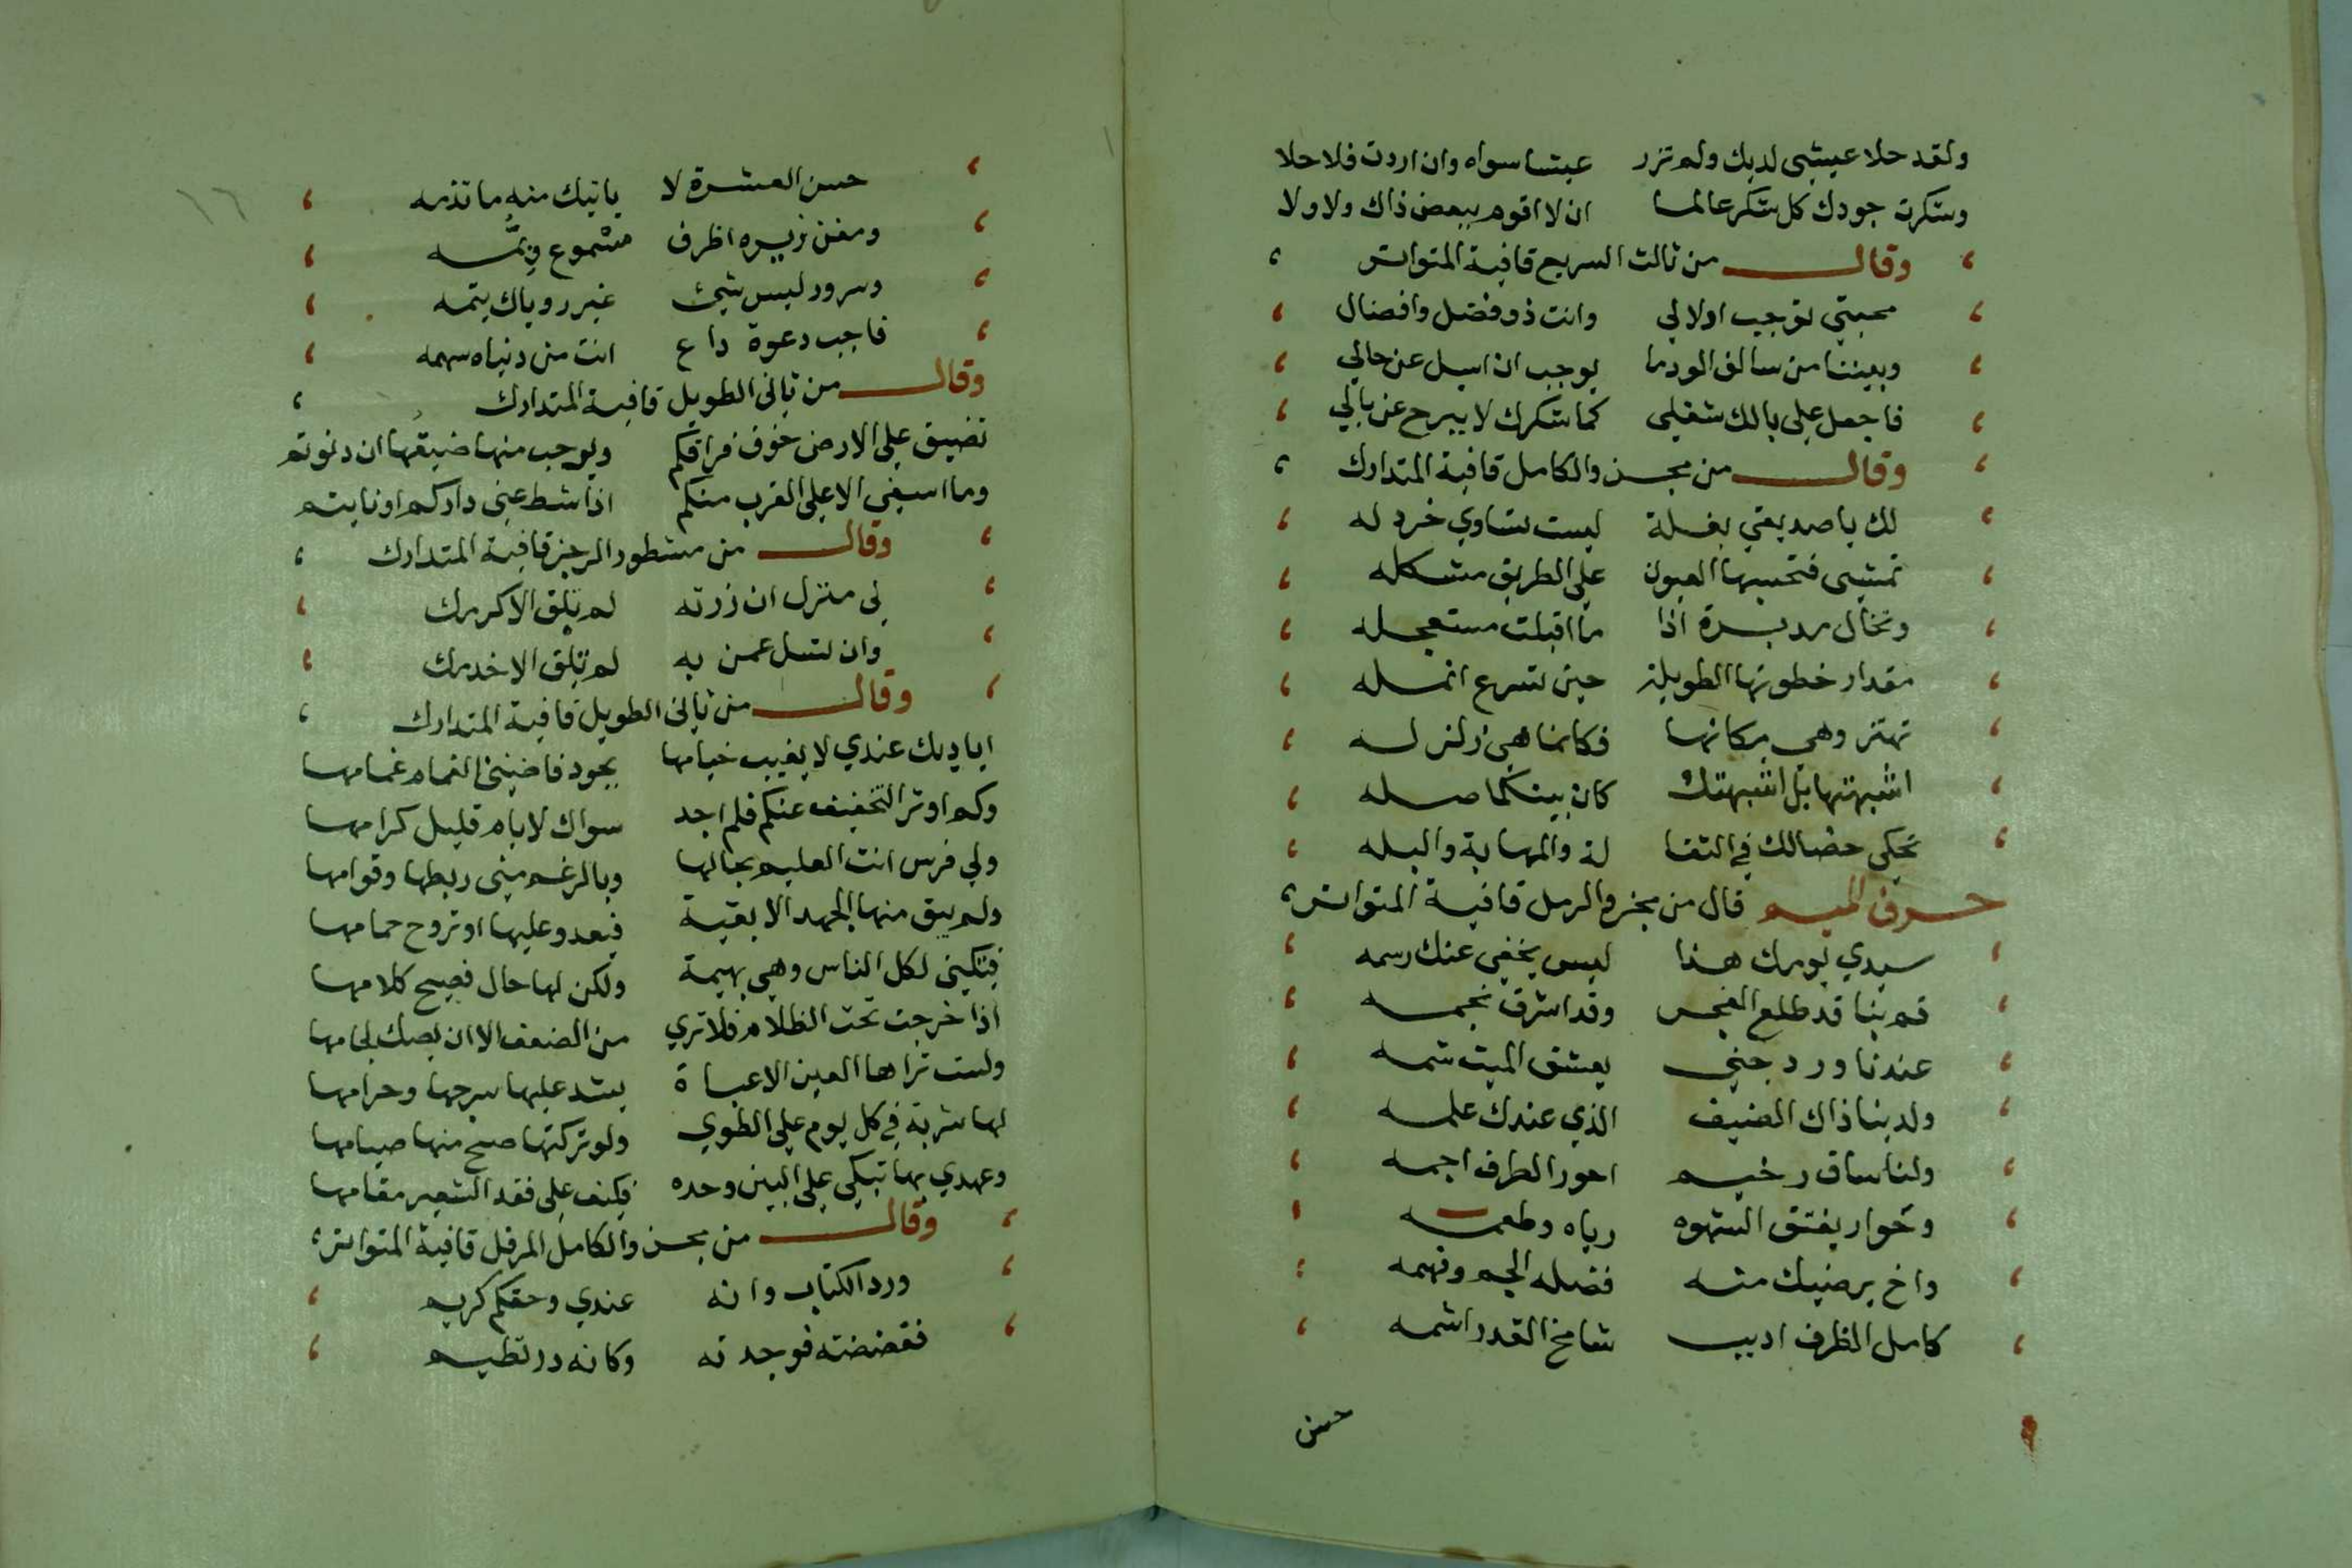 ولقد حلا عيشي لديك ولم ترد عيشا سواه وان اردت فلا حلا
وشكرت جودك كل شكر عالما ان لا اقوم ببعض ذاك ولا ولا
وقال من ثالث السريع قافية المتواتر
محبتي توجب ادلالي وانت ذو فضل وافضال
وبيننا من سالف الود ما يوجب ان اسيل عن حالي
فاجعل على بالك شغلي كما شكرك لا يبرح عن بالي
وقال من مجزو الكامل قافية المتدارك
لك يا صديقي بغلة ليست تساوي خردله
تمشي فتحسبها العيون على الطريق مشكله
وتخال مدبرة اذا ما اقبلت مستعجله
مقدار خطوتها الطويلة حين تسرع انمله
تهتز وهي مكانها فكانما هي زلزله
اشبهتها بل اشبهتك كان بينكما صله
تحكي خصالك في الثقا لة والمهابة والبله
حرف الميم قال من مجزو الرمل قافية المتواتر
سيدي يومك هذا ليس يخفي عنك رسمه
قم بنا قد طلع الفجر وقد اشرق نجمه
عندنا ورد جني يعشق الميت شمه
ولدينا ذاك الضيف الذي عندك علمه
ولنا ساق رخيم احور الطرف اجمه
وخوار يفتق الشهوه رياه وطعمه
واخ يرضيك منه فضله الجم وفهمه
كامل الظرف اديب شامخ القدر اشمه
حسن
١٦
حسن العشرة لا ياتيك منه ما تذمه
ومغن زيره اظرف مشموع وبمه
وسرور ليس شيئ غير روياك يتمه
فاجب دعوة داع انت من دنياه سهمه
وقال من ثاني الطويل قافية المتدارك
تضيق علي الارض خوف فراقكم ويوجب منها ضيقها ان دنوتم
وما اسفي الا على القرب منكم اذا شط عني داركم او نايتم
وقال من مشطور الرجز قافية المتدارك
لي منزل ان زرته لم تلق الا كرمك
وان تسل عمن به لم تلق الا خدمك
وقال من ثاني الطويل قافية المتدارك
اياديك عندي لا يغيب خيامها بجود فاضيني الغمام غمامها
وكم اوثر التخفيف عنكم فلم اجد سواك لايام قليل كرامها
ولي فرس انت العليم بحالها وبالرغم مني ربطها وقوامها
ولم يبق منها الجهد الا بقية فيعدو عليها او تروح حمامها
فتكيني لكل الناس وهي بهيمة ولكن لها حال فصيح كلامها
اذا خرجت تحت الظلام فلا تري من الضعف الا ان يصك لجامها
وليست تراها العين الا عباة يشد عليها سرجها وحزامها
لها شربة في كل يوم على الطوي ولو تركتها صح منها صيامها
وعهدي بها تبكي على التبن وحده فكيف على فقد الشعير مقامها
وقال من مجزو الكامل المرفل قافية المتواتر
ورد الكتاب وانه عندي وحقكم كريم
ففضضته فوجدته وكانه در نظيم